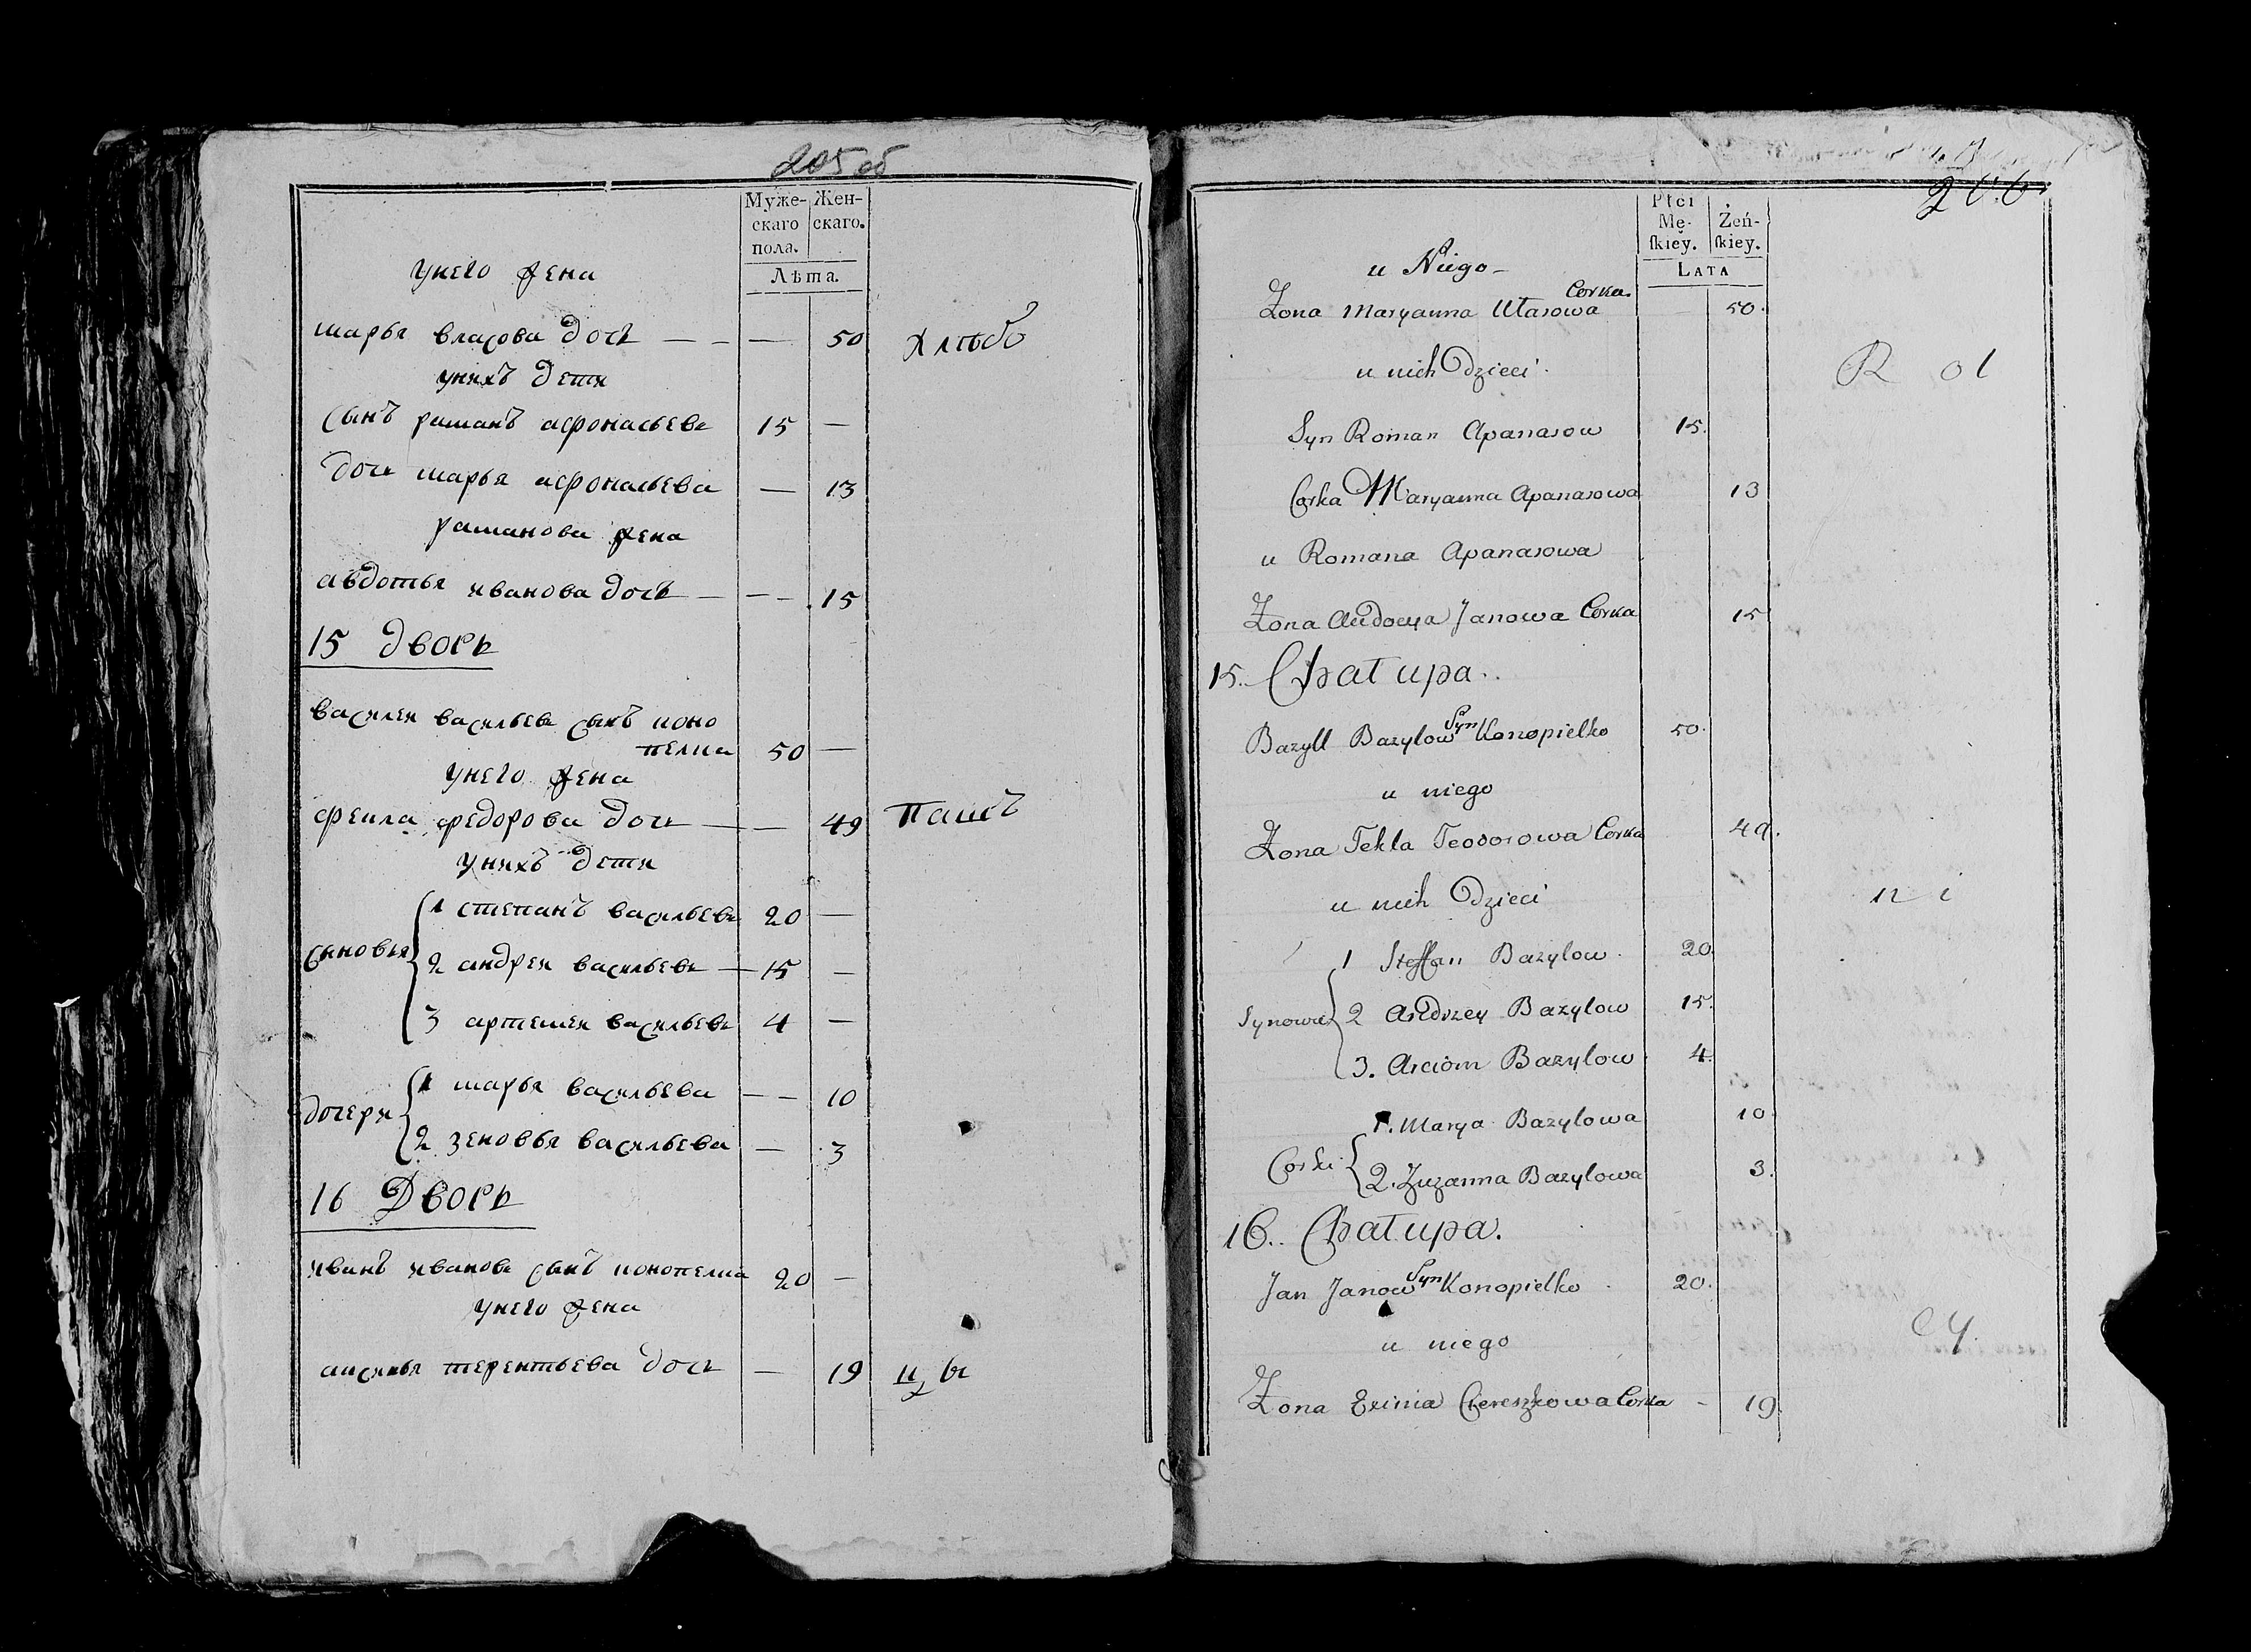 205 об
Муже-
скаго
пола.
Жен-
скаго.
Лѣта.
унего жена
марья власова дочь — — — 50 хлѣбо
унихъ дети
сынъ раманъ афонасьевъ 15 —
дочь марья афонасьева — 13
раманова жена
авдотья иванова дочь — — — 15
15 дворъ
василеи васильевъ сынъ коно
пелка 50 —
унего жена
фекла федорова дочь — — 49 пашъ
унихъ дети
сыновья
1 степанъ васильевъ 20 —
2 андреи васильевъ — 15 —
3 артемеи васильевъ 4 —
дочери
1 марья васильева — — 10
2 зеновья васильева — 3
16 Дворъ
иванъ ивановъ сынъ конопелка 20 —
унего жена
аксинья терентьева дочь — 19 цы
206
Płci
Mę-
ſkiey.
Żeń-
ſkiey.
LATA
u Niego
Corka
Zona Maryanna Utasowa 50.
u nich Dzieci
R ol
Syn Roman Apanasow 15.
Corka Maryanna Apanasowa 13
u Romana Apanasowa
Zona Audocya Janowa Corka 15
15. Chatupa.
Bazyll Bazylow Syn Konopielko 50.
u niego
Zona Tekla Teodorowa Corka 49.
u nich Dzieci
n i
Synowie
1 Steffan Bazylow 20.
2 Andrzey Bazylow 15.
3. Arciom Bazylow 4.
Corki
1. Marya Bazylowa 10.
2. Zuzanna Bazylowa 3.
16. Chatupa.
Jan Janow Syn Konopielko 20.
u niego
cy.
Zona Exinia Ciereszkowa Corka - 19